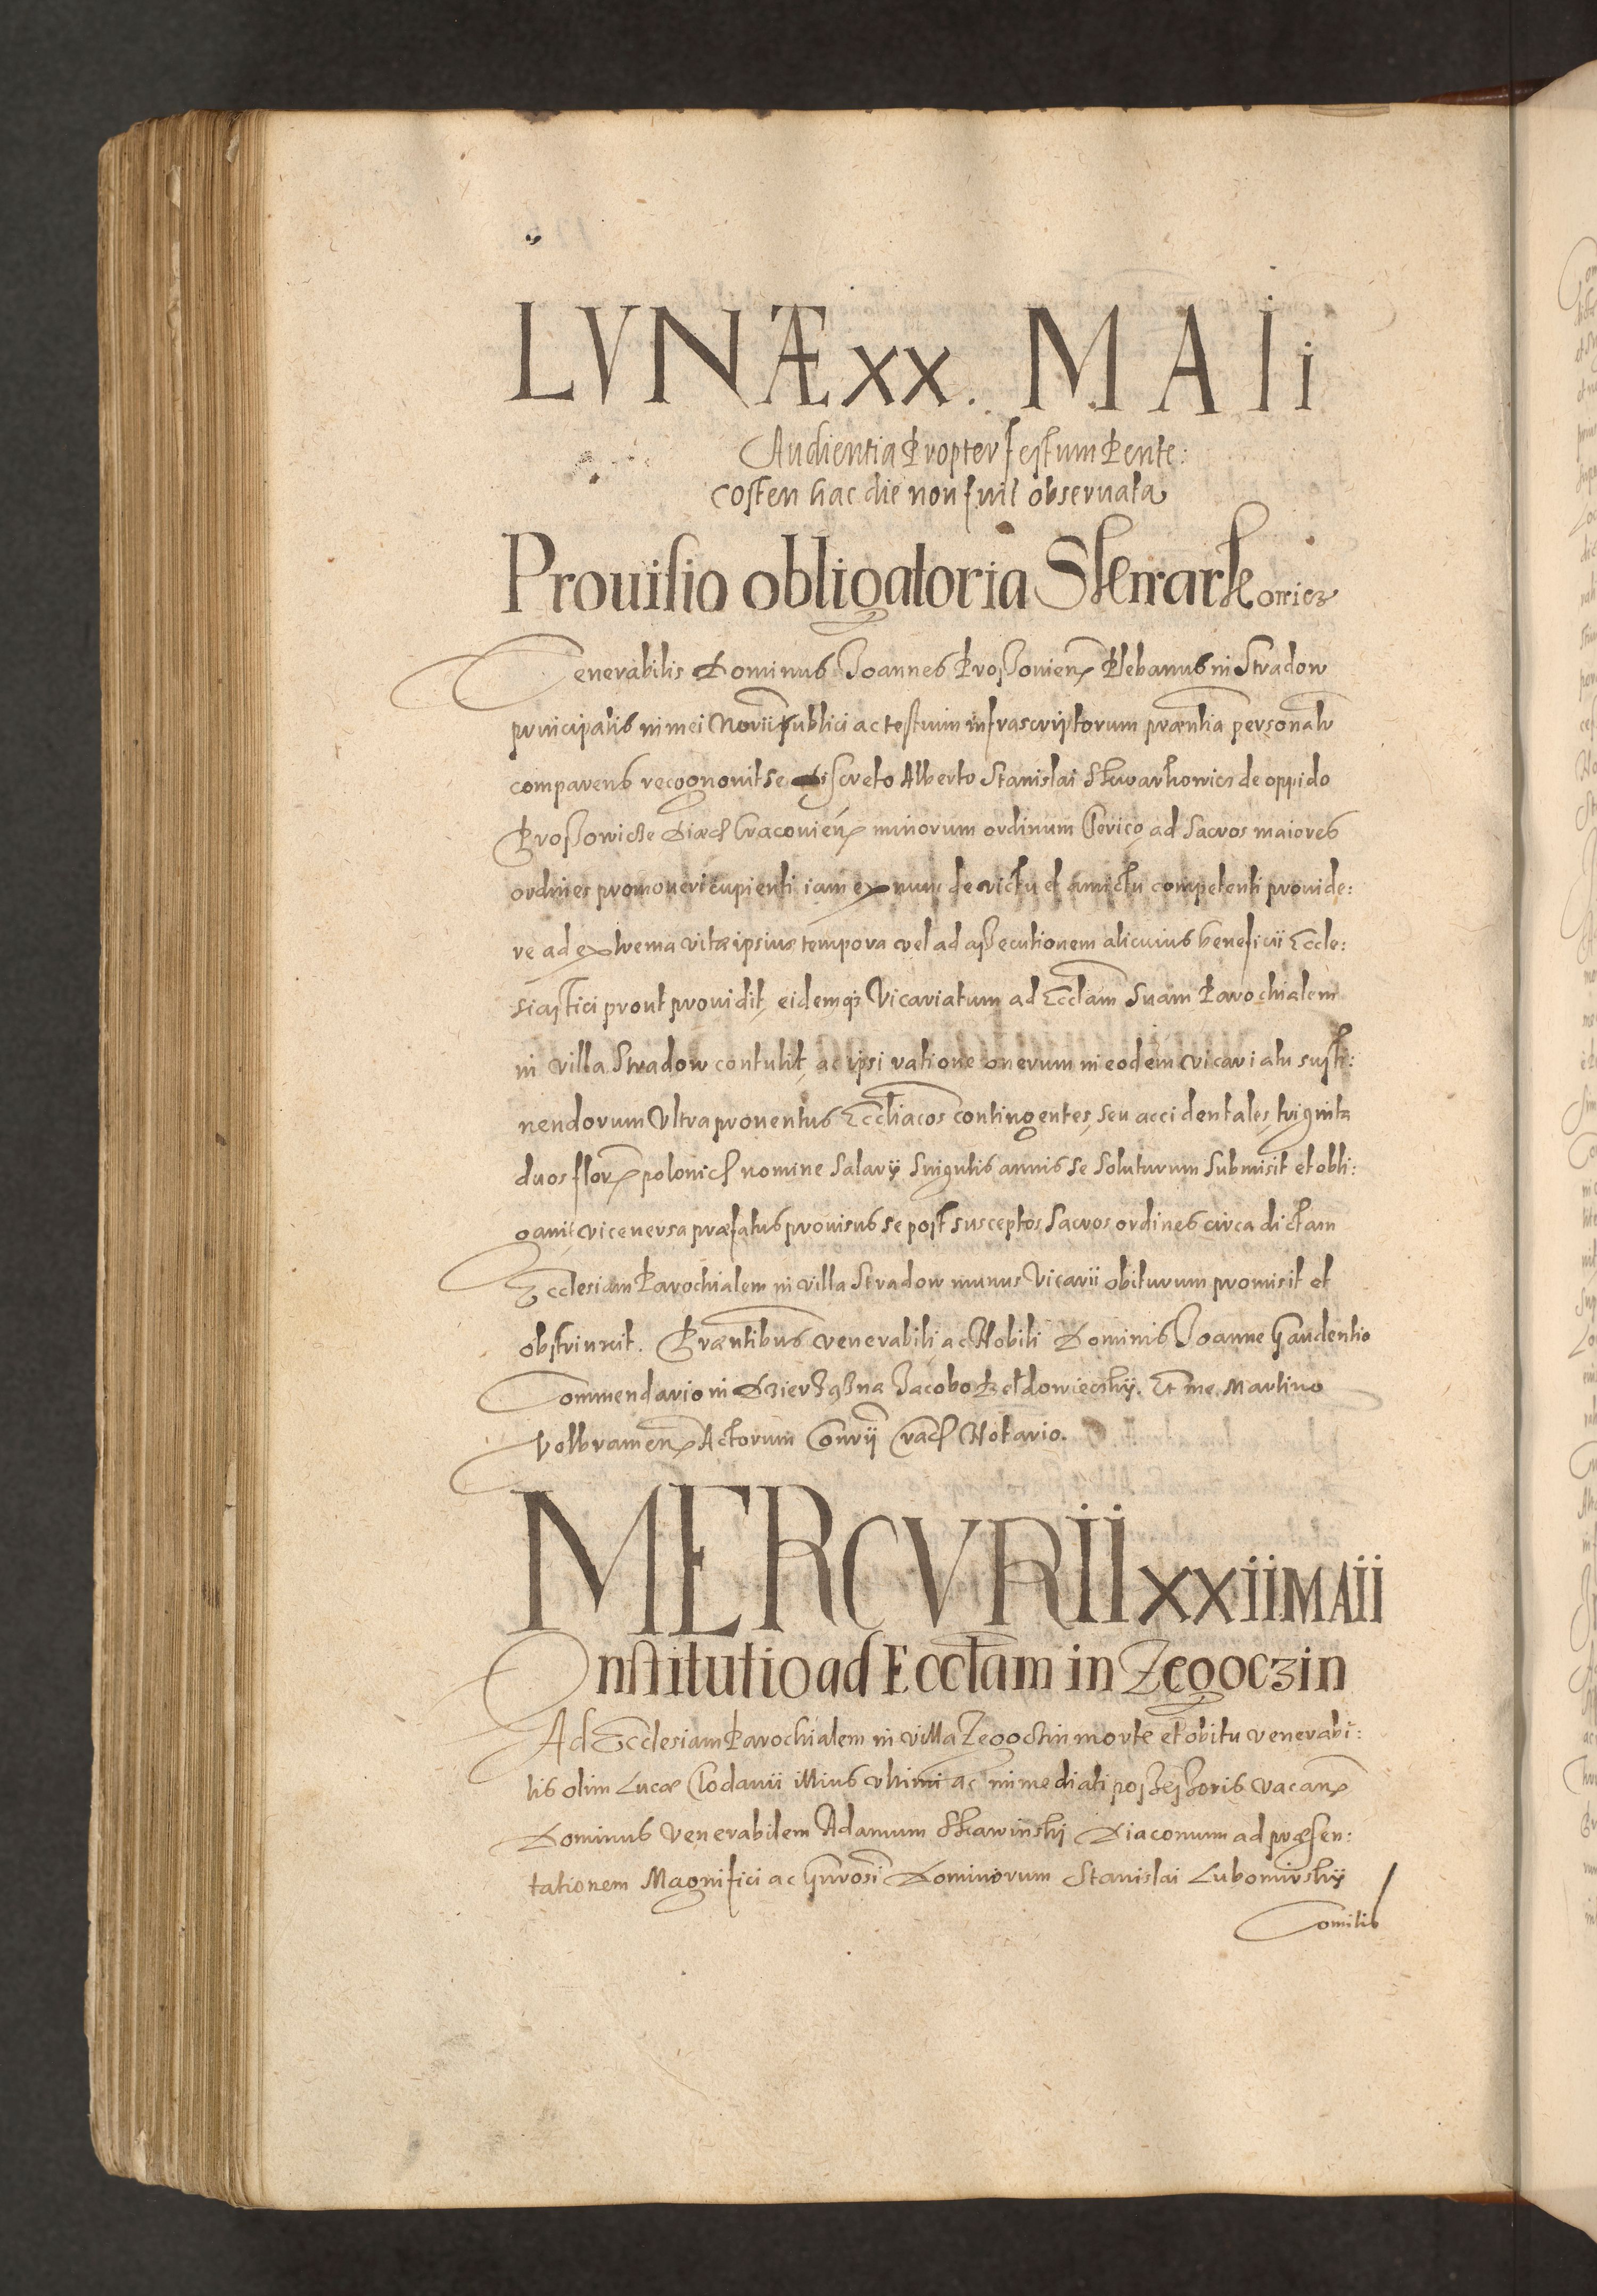 LVNÆ XX. MAIi
Audientia Propter festum Pente:
costen hac die non fuit obseruata
Prouisio obligatoria Skwarkowicz
Venerabilis Dominus Joannes Proßouien Plebanus in Stradow
principalis in mei Norii publici ac testium infrascriptorum præntia personalr
comparens recognouit se Discreto Alberto Stanislai Skwarkowicz de oppido
Proßowicze Diæc Cracouien minorum ordinum Clerico ad Sacros maiores
ordines promoueri cupienti iam ex nunc de victu et amictu competenti prouide:
re ad extrema vitæ ipsius tempora vel ad aßecutionem alicuius beneficii Eccle:
siastici prout prouidit, eidemqz Vicariatum ad Ecclam Suam Parochialem
in villa Stradow contulit, ac ipsi ratione onerum in eodem vicariatu susti:
nendorum Vltra prouentus Eccliacos contingentes, seu accidentales, triginta
duos flor polonic nomine Salarij Singulis annis se Soluturum Submisit et obli:
gauit, vice versa præfatus prouisus se post susceptos Sacros ordines circa dictam
Ecclesiam Parochialem in villa Stradow munus Vicarii obiturum promisit et
obstrinxit. Præntibus venerabili ac Nobili Dominis Joanne Gaudentio
Commendario in Jacobo Et me Martino
Volbramen Actorum Conrij Crac Notario.
MERCVRII XXII MAII
Institutio ad Ecclam in Zegoczin
Ad Ecclesiam Parochialem in villa Zegoczin morte et obitu venerabi:
lis olim Lucæ Clodauii illius vltimi ac immediati poßeßoris vacan
Dominus Venerabilem Adamum Skawinski Diaconum ad præsen:
tationem Magnifici ac Gnrosi Dominorum Stanislai Lubomirskij
Comitis